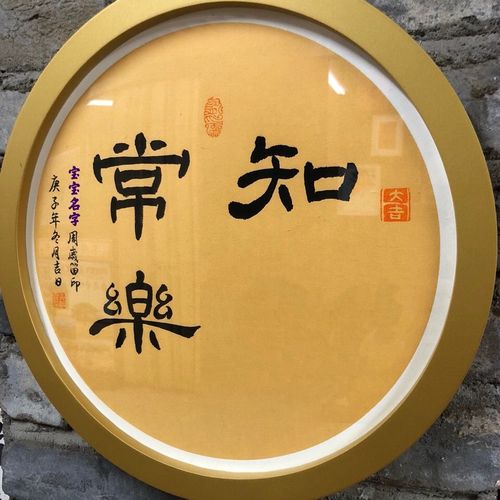 大吉
知
常樂
宝宝名字 周歲留印
庚子年冬月吉日